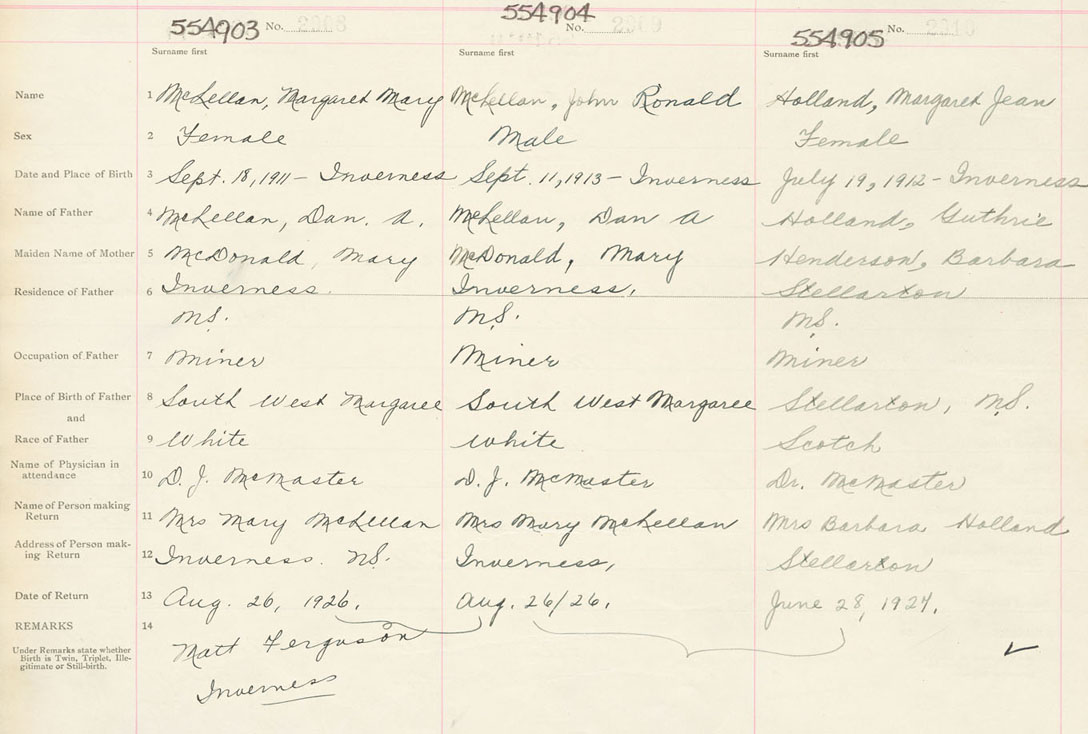 554903 No. 2908
554904 No. 2909
554905 No. 2910
Surname first Surname first Surname first
Name 1 McLellan, Margaret Mary McLellan, John Ronald Holland, Margaret Jean
Sex 2 Female Male Female
Date and Place of Birth 3 Sept. 18, 1911 – Inverness Sept. 11, 1913 – Inverness July 19, 1912 – Inverness
Name of Father 4 McLellan, Dan. A. McLellan, Dan A Holland, Guthrie
Maiden Name of Mother 5 McDonald, Mary McDonald, Mary Henderson, Barbara
Residence of Father 6 Inverness. Inverness, Stellarton
N.S. N.S. N.S.
Occupation of Father 7 Miner Miner Miner
Place of Birth of Father 8 South West Margaree South West Margaree Stellarton, N.S.
and
Race of Father 9 White White Scotch
Name of Physician in
attendance 10 D. J. McMaster D. J. McMaster Dr. McMaster
Name of Person making
Return 11 Mrs Mary McLellan Mrs Mary McLellan Mrs Barbara Holland
Address of Person mak-
ing Return 12 Inverness. N.S. Inverness, Stellarton
Date of Return 13 Aug. 26, 1926. Aug. 26/26. June 28, 1927.
REMARKS 14
Matt Ferguson
Inverness
Under Remarks state whether
Birth is Twin, Triplet, Ille-
gitimate or Still-birth.